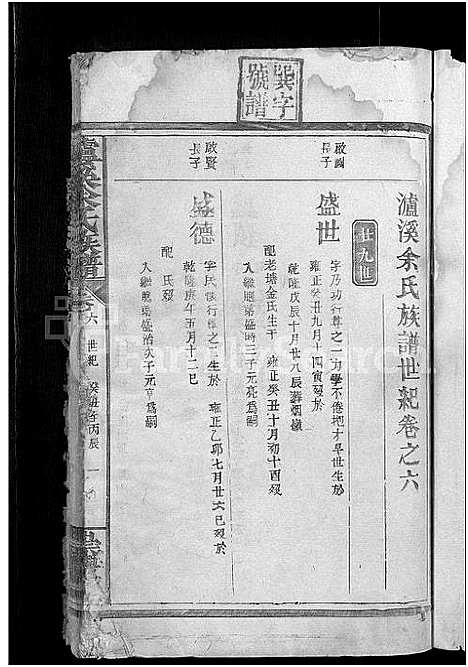 巽字
號譜
瀘溪余氏族譜世紀卷之六
廿九世
啟國
長子
盛世
字乃功行尊之一力學不倦抱才早世生於
雍正癸丑九月十四寅歿於
乾隆戊辰十月廿八辰葬烟嶺
配老塘金氏生于 雍正癸丑十月初十酉歿
入繼胞弟盛時三子元亮為嗣
啟賢
長子
盛德
字氏俊行尊之一生於 雍正乙卯七月廿六巳歿於
乾隆庚午五月十二巳
配 氏歿
入繼胞弟盛治次子元亨為嗣
瀘溪余氏族譜
卷六 世紀 丙辰 一